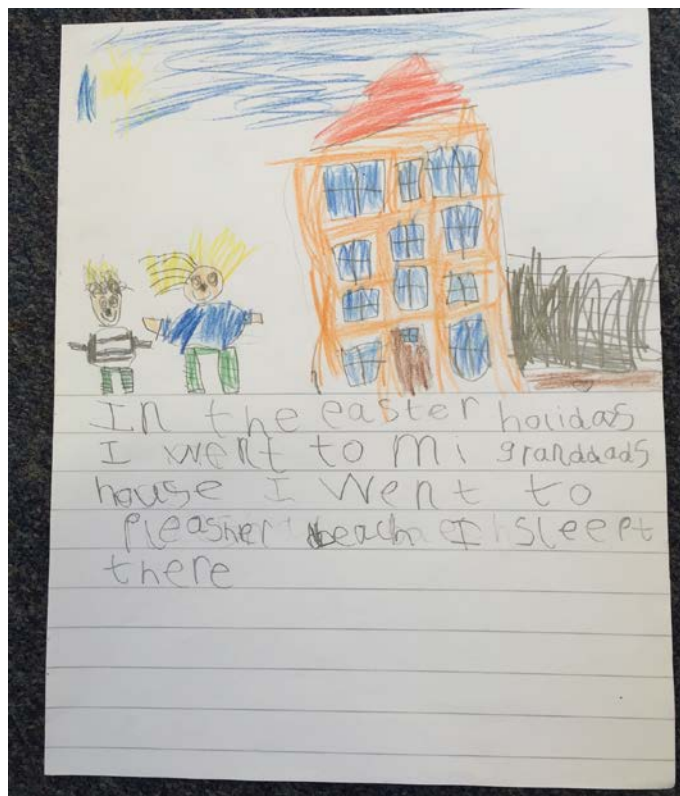 In the easter holidas
I went to mi granddads
house I went to
pleasher beach I sleept
there